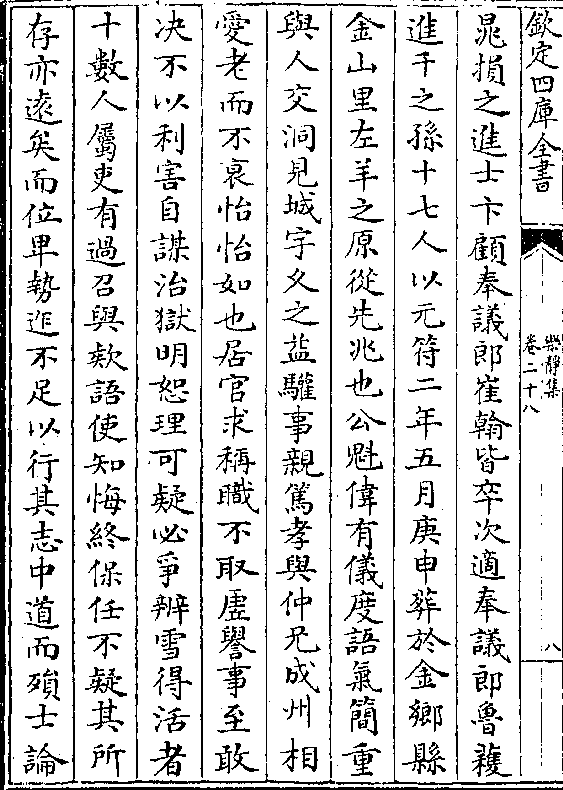 欽定四庫全書
樂靜集
卷二十八
八
晁損之進士卞顧奉議郎崔翰皆卒次適奉議郎魯䕶
進千之孫十七人以元符二年五月庚申葬於金鄉縣
金山里左羊之原從先兆也公魁偉有儀度語氣簡重
與人交洞見城宇久之益驩事親篤孝與仲兄成州相
愛老而不衰怡怡如也居官求稱職不取虛譽事至敢
决不以利害自謀治獄明恕理可疑必爭辨雪得活者
十數人屬吏有過召與欵語使知悔終保任不疑其所
存亦逺矣而位卑勢迮不足以行其志中道而殞士論